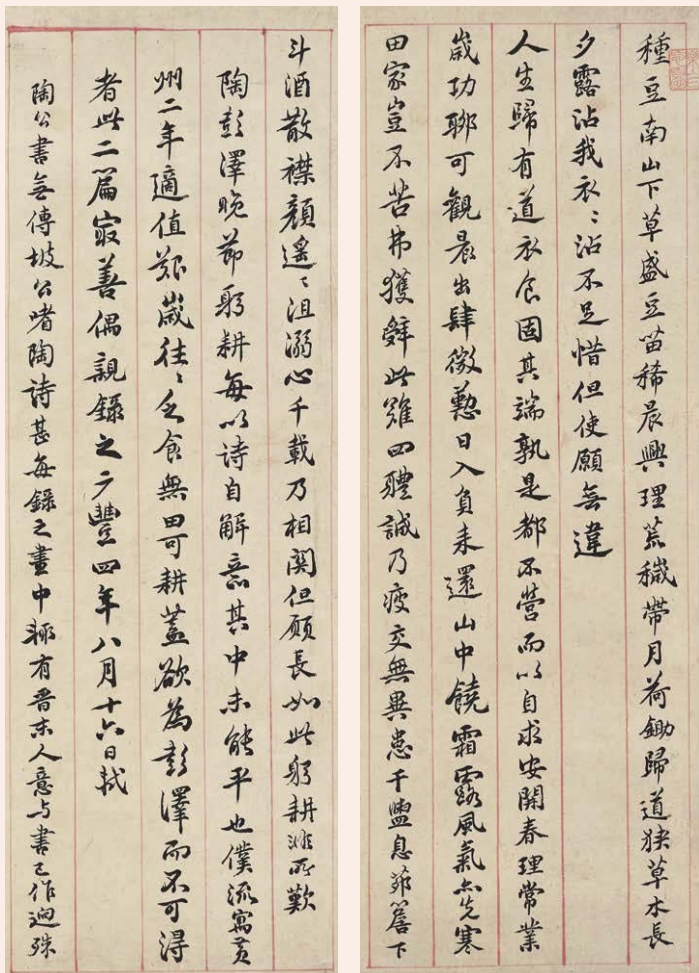 種豆南山下草盛豆苗稀晨興理荒穢帶月荷鋤歸道狹草木長
夕露沾我衣〻沾不足惜但使願無違
人生歸有道衣食固其端孰是都不營而以自求安開春理常業
歲功聊可觀晨出肆微懃日入負耒還山中饒霜露風氣亦先寒
田家豈不苦弗獲辭此難四體誠乃疲交無異患干盥息茆簷下
斗酒散襟顏遙〻沮溺心千載乃相関但願長如此躬耕非所歎
陶彭澤晚節躬耕每以詩自解意其中未能平也僕流寓黃
州二年適值艱歲往〻乏食無田可耕蓋欲為彭澤而不可得
者此二篇寂善偶親錄之元豐四年八月十六日軾
陶公書無傳坡公嗜陶詩甚每錄之畫中輒有晉宋人意与書己作迥殊